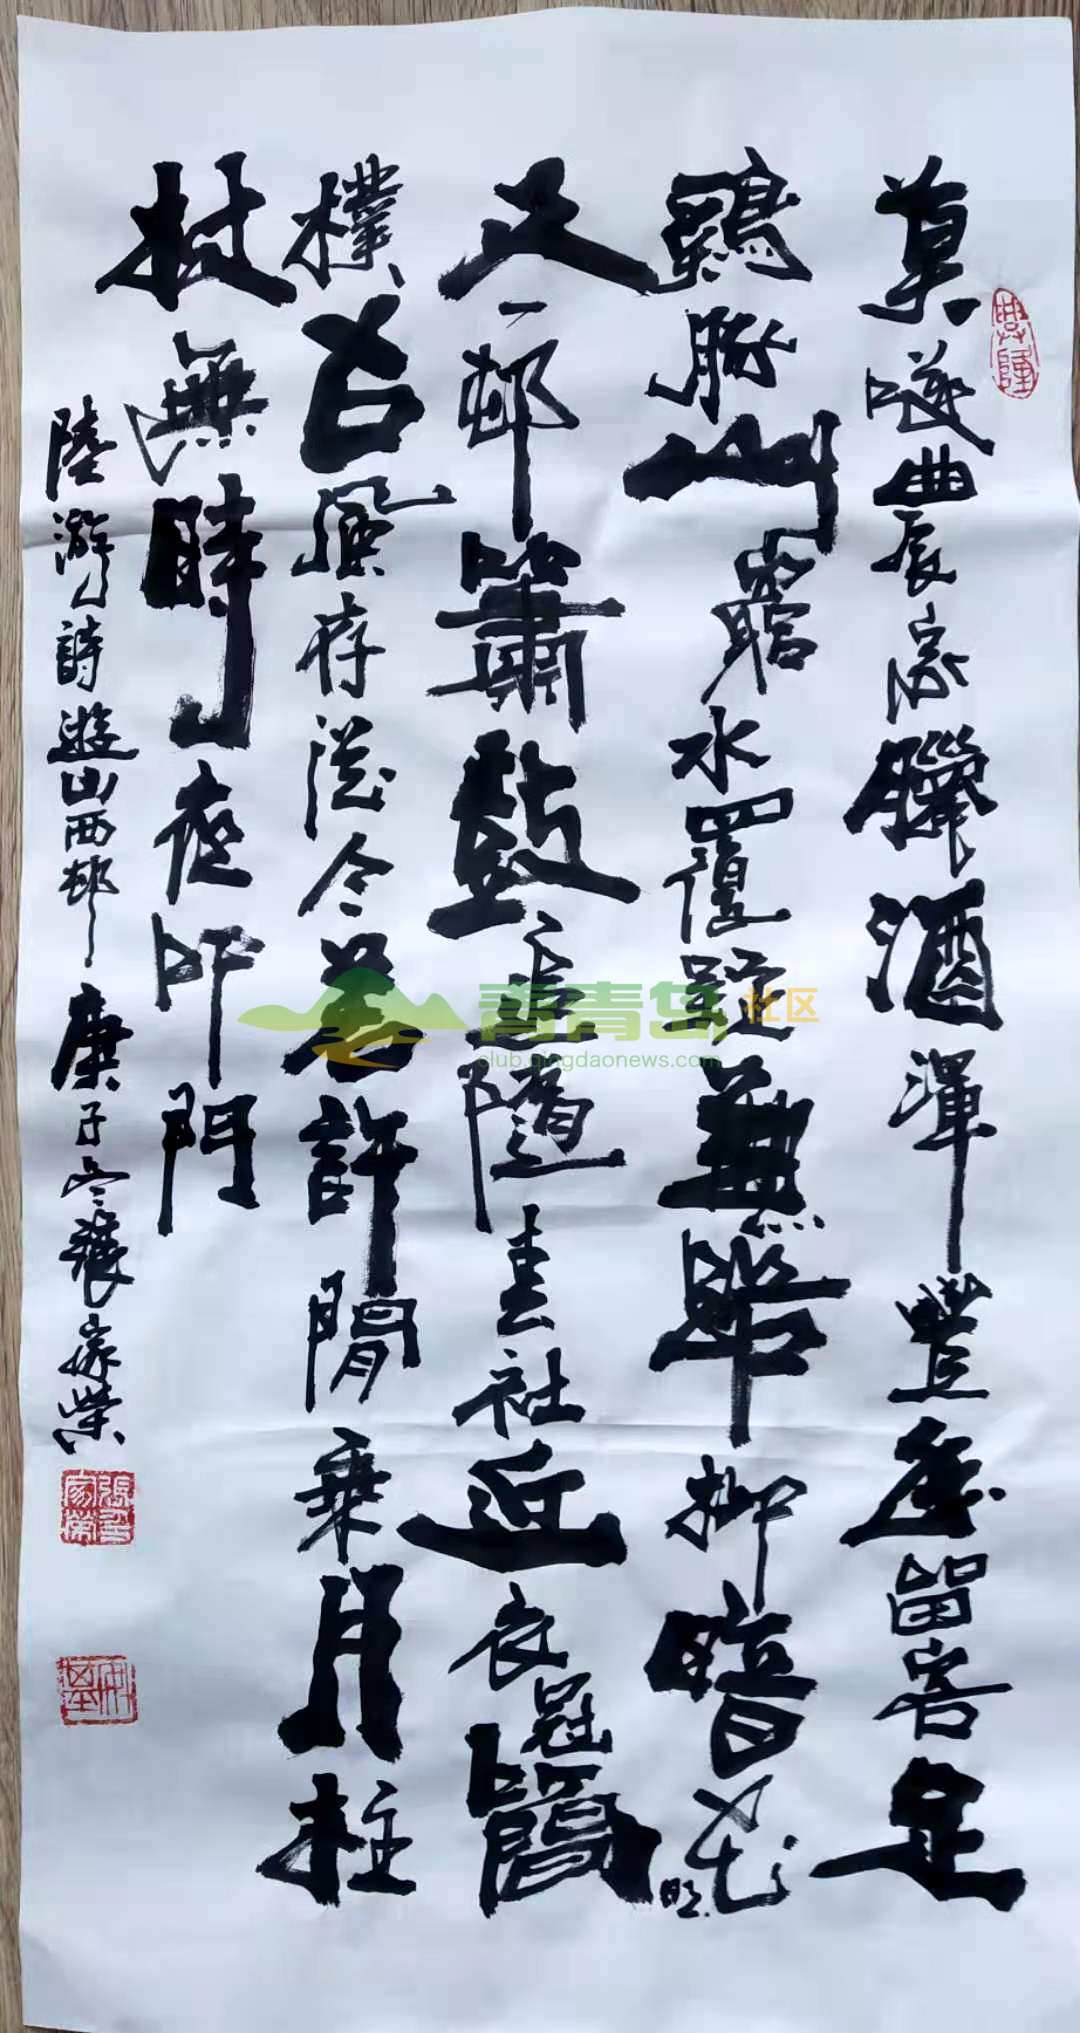 莫咲農家臘酒渾豐年留客足
鷄豚山窮水覆疑無路柳暗花明
又一邨簫鼓追隨春社近衣冠簡
樸古風存從今若許閒乘月拄
杖無時夜叩門
陸游詩遊山西邨庚子冬張家榮
青青岛社区
club.qingdaonews.com